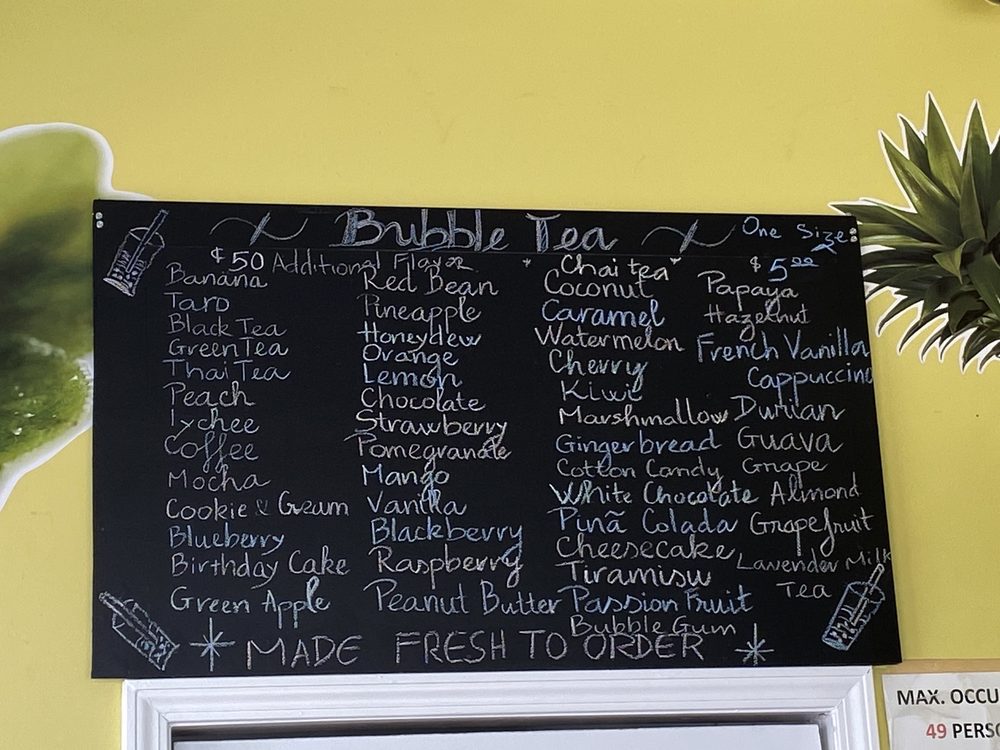 Bubble Tea
One Size
$5.00
$50 Additional Flavor
Banana
Taro
Black Tea
Green Tea
Thai Tea
Peach
Lychee
Coffee
Mocha
Cookie & Cream
Blueberry
Birthday Cake
Green Apple
Red Bean
Pineapple
Honeydew
Orange
Lemon
Chocolate
Strawberry
Pomegranate
Mango
Vanilla
Blackberry
Raspberry
Peanut Butter
"Chai tea"
Coconut
Caramel
Watermelon
Cherry
Kiwi
Marshmallow
Gingerbread
Cotton Candy
White Chocolate
Pinã Colada
Cheesecake
Tiramisu
Passion Fruit
Bubble Gum
Papaya
Hazelnut
French Vanilla
Cappuccino
Durian
Guava
Grape
Almond
Grapefruit
Lavender Milk
Tea
MADE FRESH TO ORDER
MAX. OCCU
49 PERSO